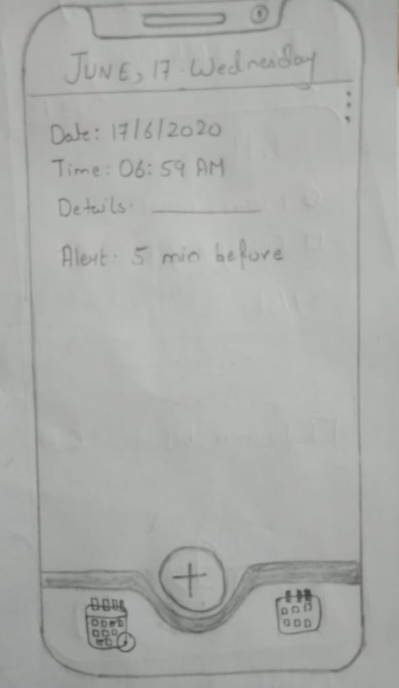 JUNE, 17 Wednesday
Date: 17/6/2020
Time: 06:59 AM
Details: ________
Alert: 5 min before